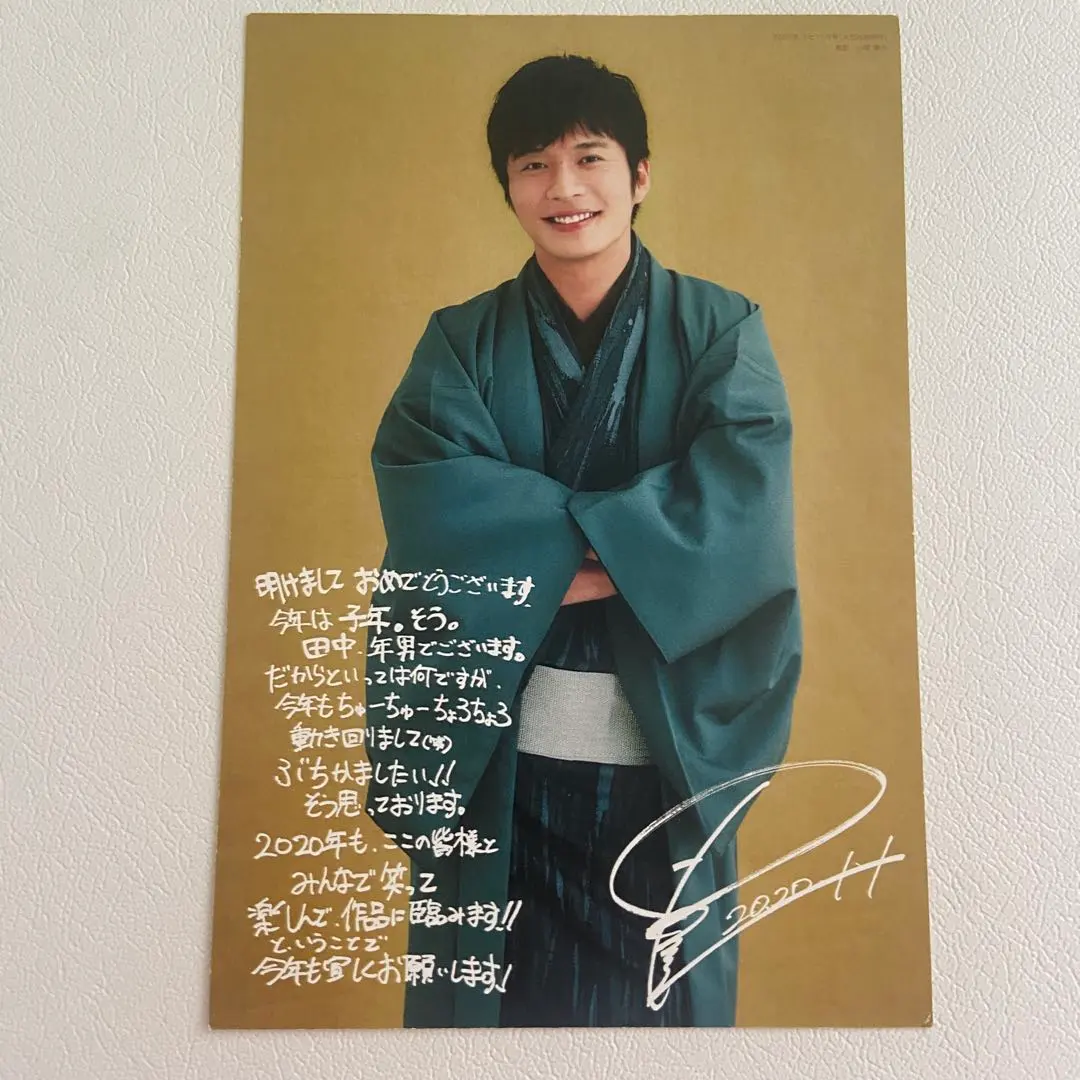 明けまして おめでとうございます
今年は子年。そう。
田中、年男でございます。
だからといっては何ですが、
今年もちゅーちゅーちょろちょろ
動き回りまして(笑)
ぶちかましたい!!
そう思っております。
2020年も、ここの皆様と
みんなで笑って
楽しんで、作品に臨みます!!
ということで
今年も宜しくお願いします!
2020 1.1